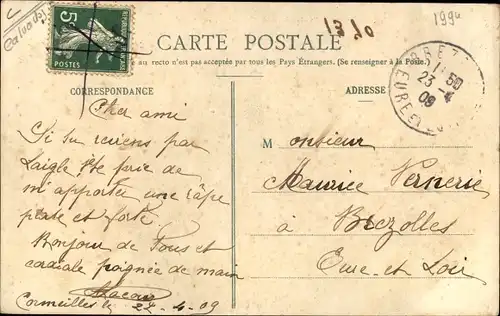 Calvados
5c
POSTES
13.10
1994
CARTE POSTALE
au recto n'est pas acceptée par tous les Pays Étrangers. (Se renseigner à la Poste.)
CORRESPONDANCE
ADRESSE
BREZ
11 50
23 -4
09
EURE-ET-LOIR
Cher ami
Si tu reviens par
Laigle je te prie de
m'apporter une râpe
plate et forte
Bonjour de Tous et
cordiale poignée de main
Cormeilles le 22-4-09
Monsieur
Maurice
à Brezolles
Eure-et-Loir